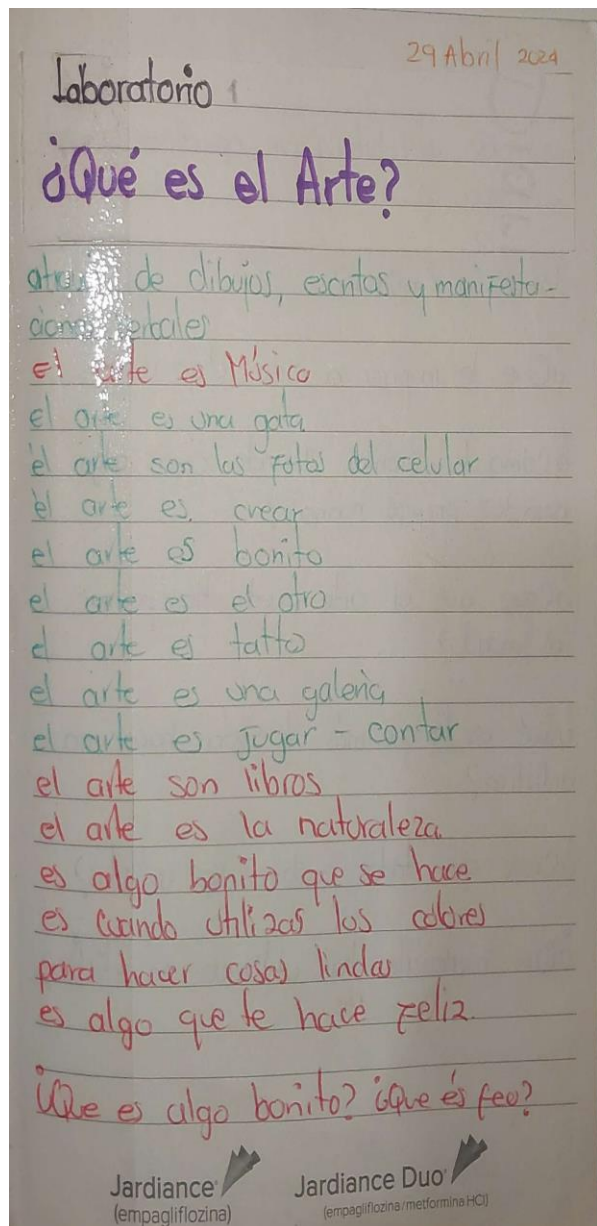 29 Abril 2024
Laboratorio 1
¿Qué es el Arte?
de dibujos, escritos y manifesta-
El arte es Músico
el arte es una gata
el arte son las Fotos del celular
el arte es. crear
el arte es bonito
el arte es el otro
el arte es tatto
el arte es una galeria
el arte es Jugar - contar
el arte son libros
el arte es la naturaleza
es algo bonito que se hace
es cuando utilizas los colores
para hacer cosas lindas
es algo que te hace Feliz.
¿Que es algo bonito? ¿Que és feo?
Jardiance
(empagliflozina)
Jardiance Duo
(empagliflozina/metformina HCl)